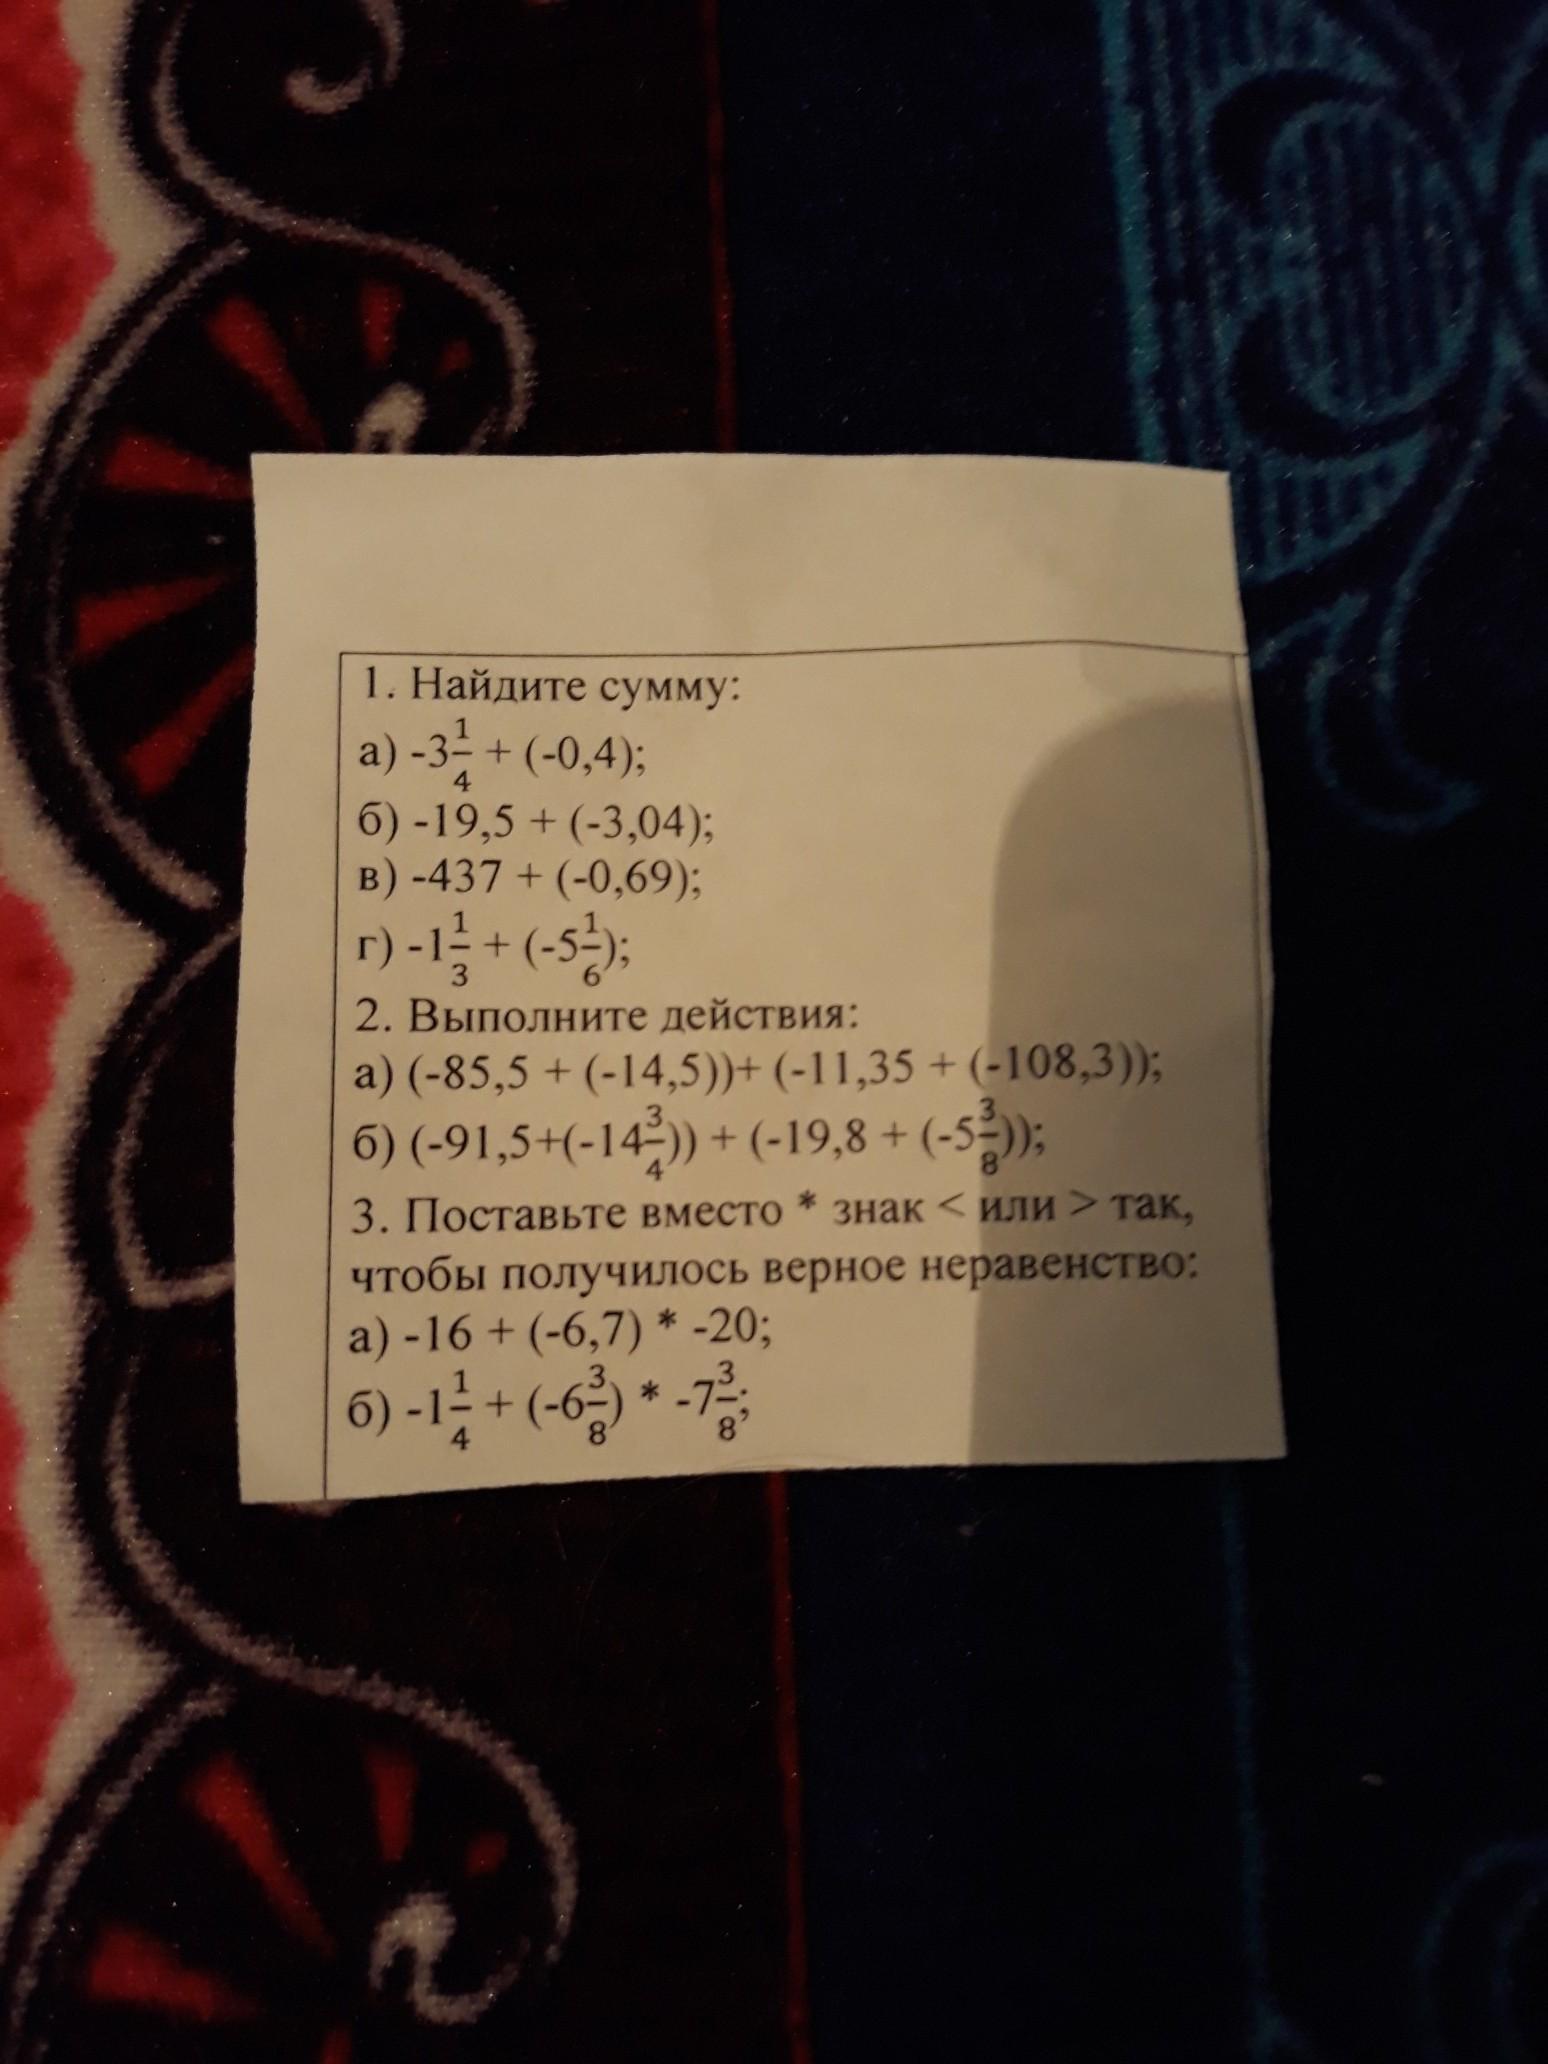 1. Найдите сумму:
а) -3 1/4 + (-0,4);
б) -19,5 + (-3,04);
в) -437 + (-0,69);
г) -1 1/3 + (-5 1/6);
2. Выполните действия:
а) (-85,5 + (-14,5))+ (-11,35 + (-108,3));
б) (-91,5+(-14 3/4)) + (-19,8 + (-5 3/8));
3. Поставьте вместо * знак < или > так,
чтобы получилось верное неравенство:
а) -16 + (-6,7) * -20;
б) -1 1/4 + (-6 3/8) * -7 3/8;